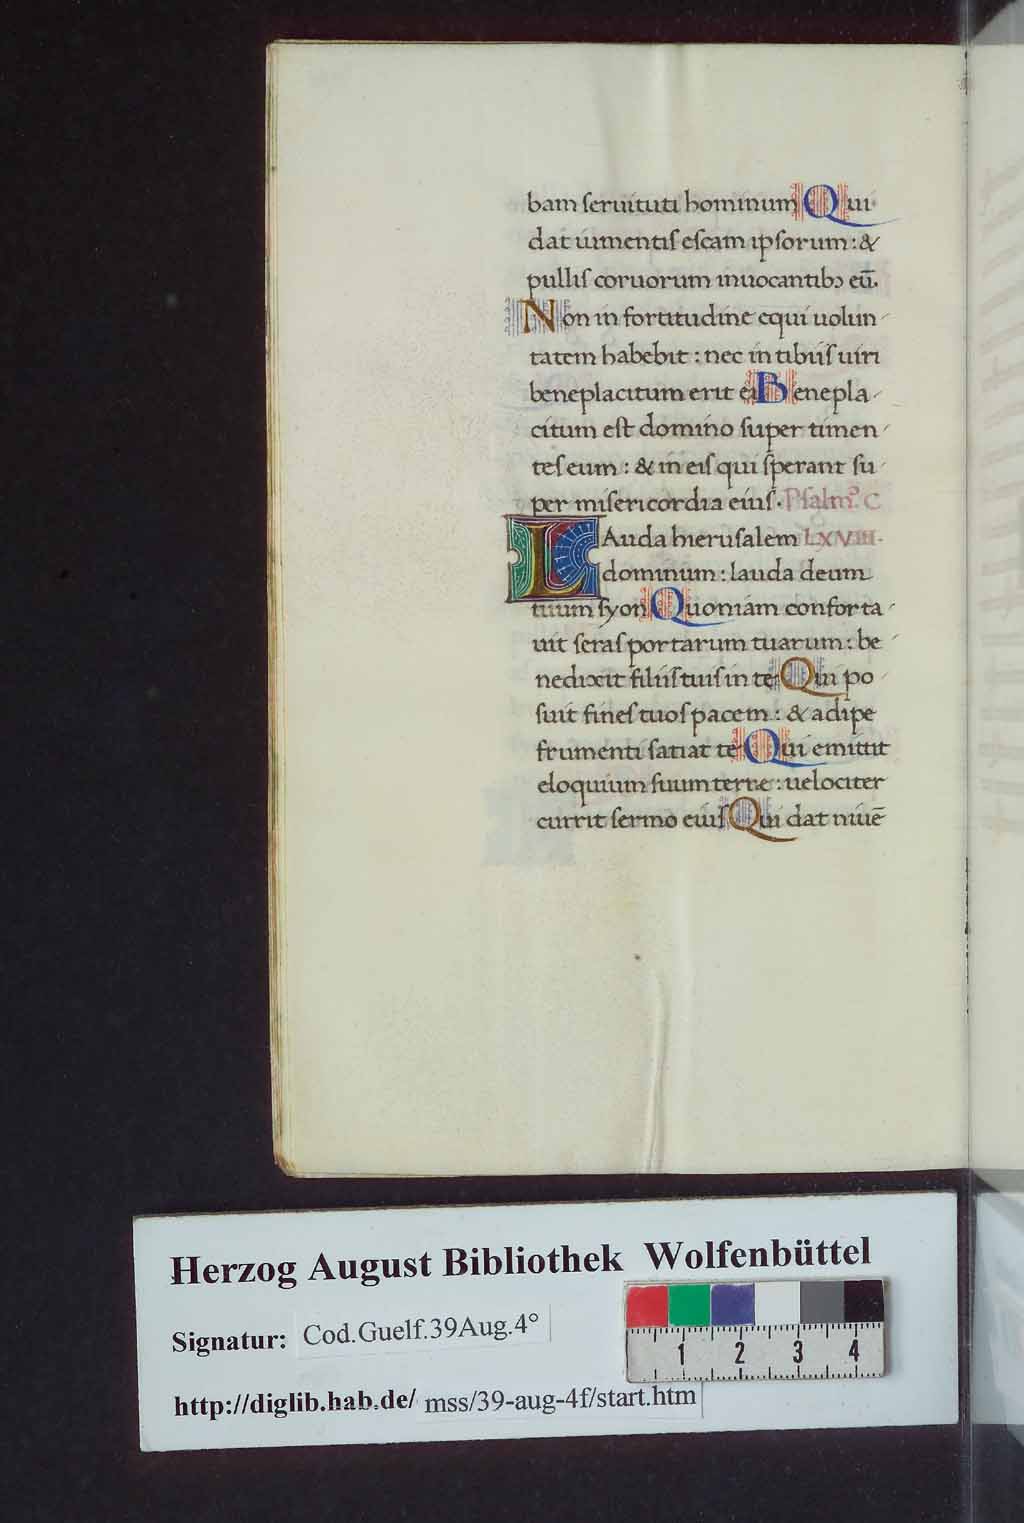 bam seruituti hominum Qui
dat iumentis escam ipsorum : &
pullis coruorum inuocantibꝫ eū.
Non in fortitudine equi uolun-
tatem habebit : nec in tibiis uiri
beneplacitum erit ei Benepla-
citum est domino super timen-
tes eum : & in eis qui sperant su-
per misericordia eius. Psalmꝰ. C
LAuda hierusalem LXVIII.
dominum : lauda deum
tuum syon Quoniam conforta-
uit seras portarum tuarum : be-
nedixit filiis tuis in te Qui po-
suit fines tuos pacem : & adipe
frumenti satiat te Qui emittit
eloquium suum terre : uelociter
currit sermo eius Qui dat niuē
Herzog August Bibliothek Wolfenbüttel
Signatur: Cod.Guelf.39Aug.4°
1 2 3 4
http://diglib.hab.de/ mss/39-aug-4f/start.htm